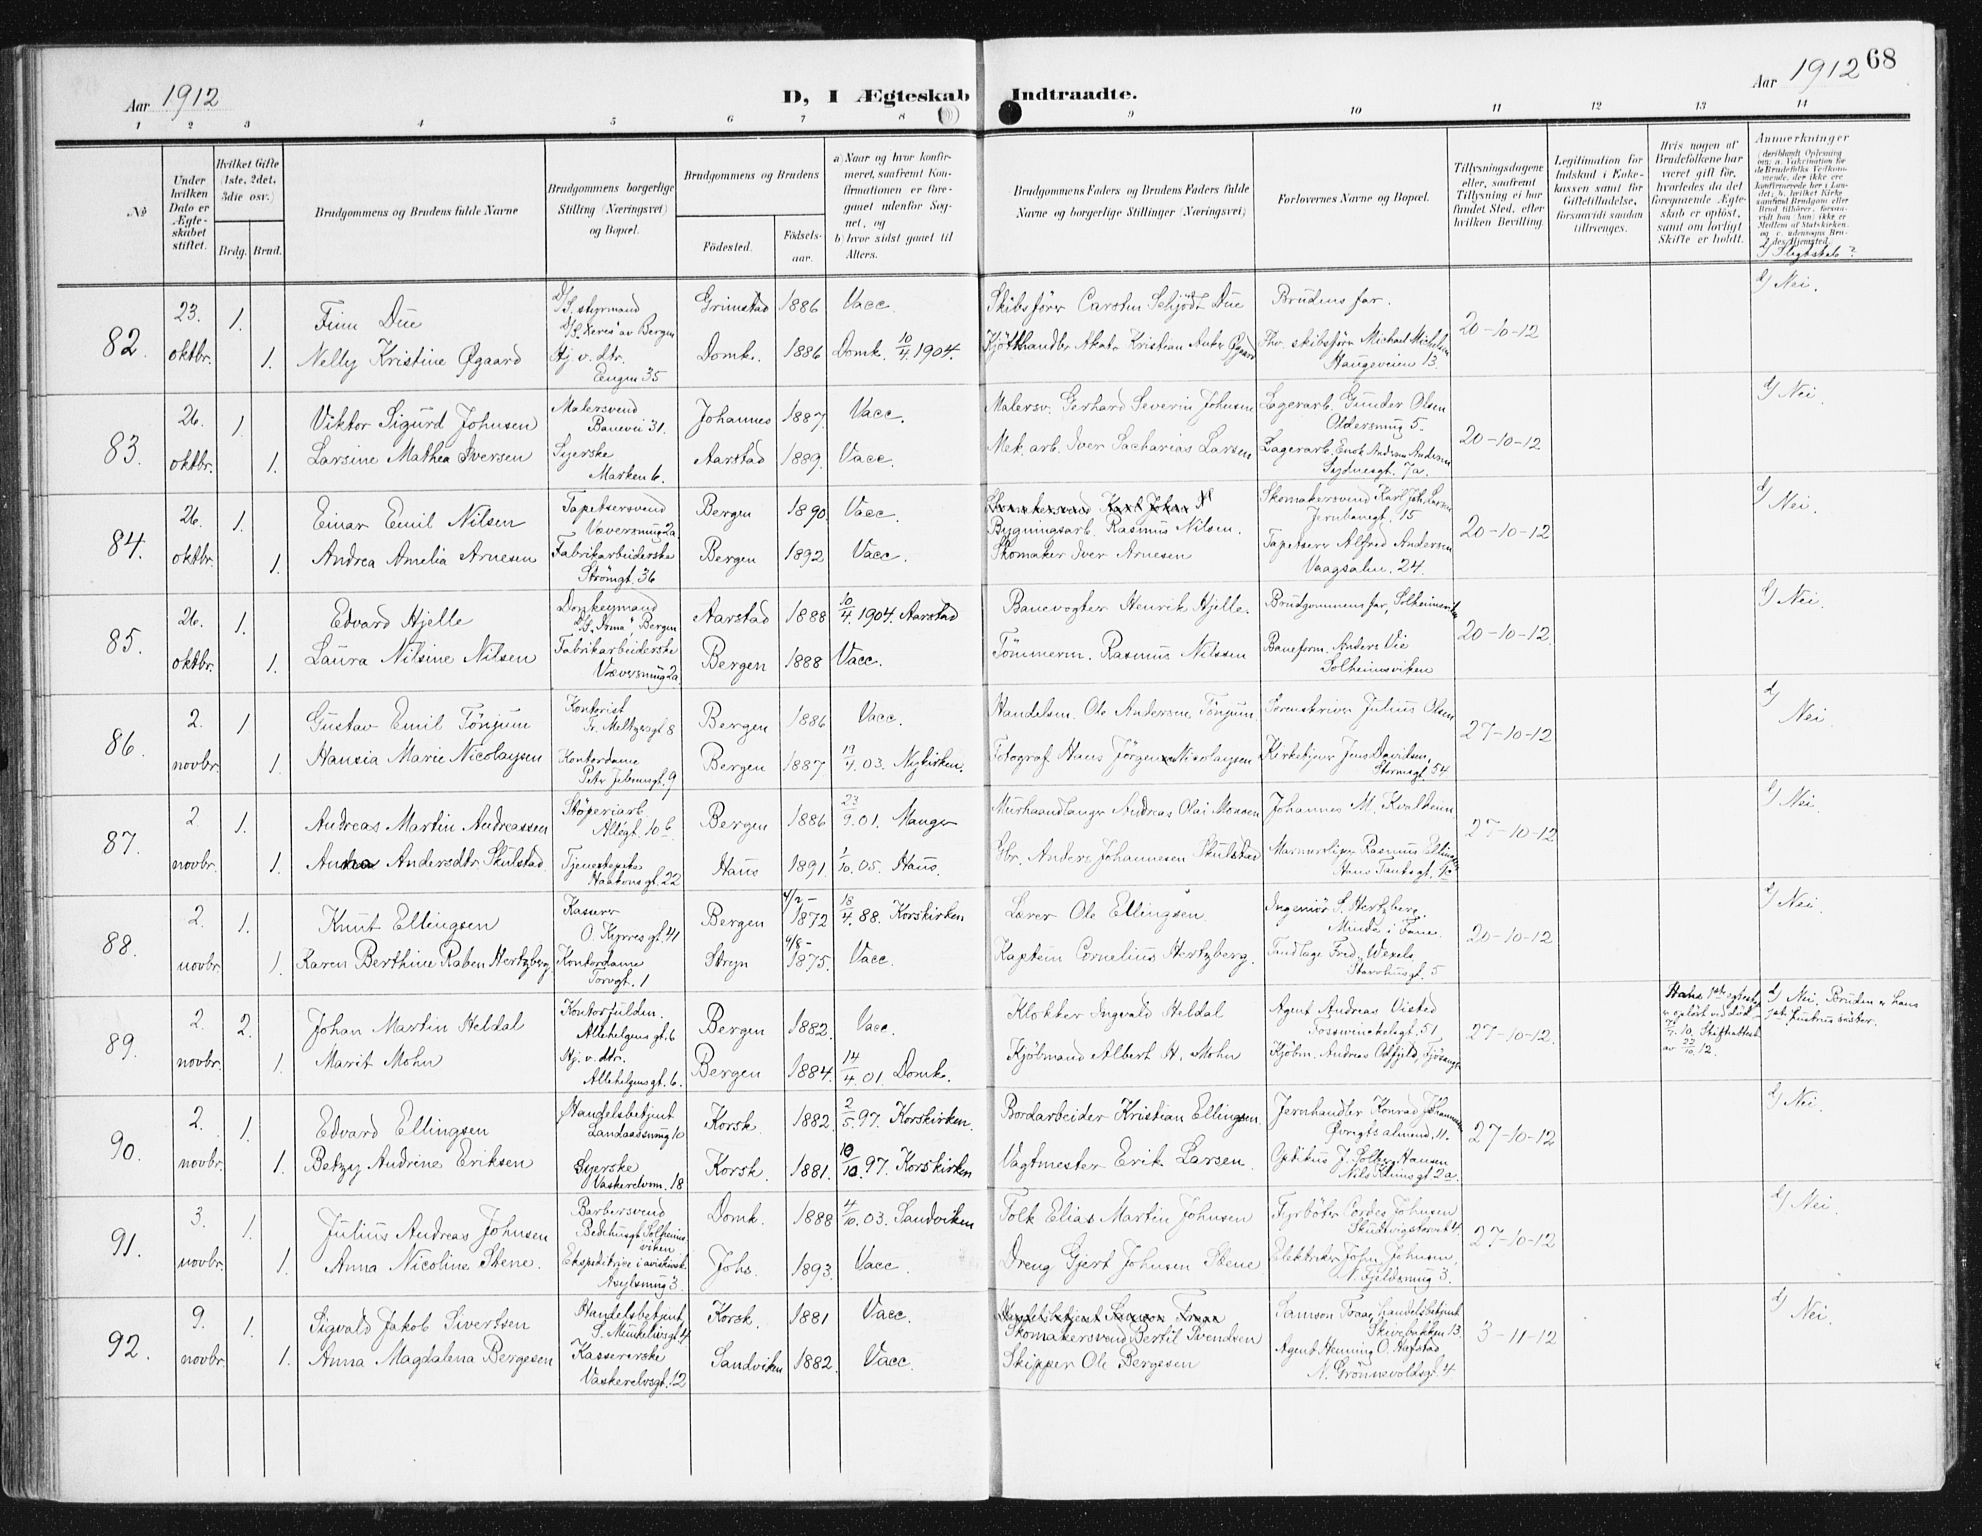 Aar 1912
D, I Ægteskab Indtraadte.
Aar 1912 68
1 2 3 4 5 6 7 8 9 10 11 12 13 14
№
Under hvilken Dato er Ægteskabet stiftet.
Hvilket Gifte (1ste, 2det, 3die osv.)
Brdg. Brud.
Brudgommens og Brudens fulde Navne
Brudgommens borgerlige Stilling (Næringsvei) og Bopæl.
Brudgommens og Brudens
Fødested.
Fødselsaar.
a) Naar og hvor konfirmeret, saafremt Konfirmationen er foregaaet udenfor Sognet, og
b) hvor sidst gaaet til Alters.
Brudgommens Faders og Brudens Faders fulde Navne og borgerlige Stillinger (Næringsvei)
Forlovernes Navne og Bopæl.
Tillysningsdagene eller, saafremt Tillysning ei har fundet Sted, efter hvilken Bevilling.
Legitimation for Indskud i Enkekassen samt for Giftetilladelse, forsaavidt saadan tiltrænges.
Hvis nogen af Brudefolkene har været gift før, hvorledes da det foregaaende Ægteskab er opløst, samt om lovligt Skifte er holdt.
Anmerkninger
d/ Slegtskab?
82. 23. oktbr. 1. Finn Due D/S. styrmand D/S. "Xeres" av Bergen Grimstad 1886 Vacc. Skibsfører Carsten Schjödt Due Brudens far. 20-10-12 d/ Nei.
1. Nelly Kristine Øgaard Hj. v. dtr. Engen 35 Domk. 1886 Domk. 10/4. 1904. Kjötthandler Akatr Kristian Anker Øgaard Fhv. skibsfører Michael Michelsen Haugeveien 13.
83. 26. oktbr. 1. Viktor Sigurd Johnsen Malersvend Banevei 31. Johannes 1887. Vacc. Malersv. Gerhard Severin Johnsen Lagerarb. Gunder Olsen Oldersmug 5. 20-10-12 d/ Nei.
1. Larsine Mathea Iversen Syerske Marken 6. Aarstad 1889. Vacc. Mek. arb. Iver Sacharias Larsen Lagerarb. Enok Andreas Andersen Sydnesgt. 7a.
84. 26. oktbr. 1. Einar Emil Nilsen Tapetsersvend Væversmug 2a Bergen 1890. Vacc. Bygningsarb. Rasmus Nilsen. Skomakersvend Karl Joh. Larsen Jernbanegt. 15 20-10-12 d/ Nei.
1. Andrea Amelia Arnesen Fabrikarbeiderske Strömgt. 36 Bergen 1892 Vacc. Skomaker Iver Arnesen Tapetserer Alfred Andersen Vaagsalm. 24.
85. 26. oktbr. 1. Edvard Hjelle Donkeymand D/S. "Anna" Bergen Aarstad 1888 10/4. 1904. Aarstad Banevogter Henrik Hjelle. Brudgommens far, Solheimsviken 20-10-12. d/ Nei.
1. Laura Nilsine Nilsen Fabrikarbeiderske Væversmug 2a. Bergen 1888 Vacc. Tömmerm. Rasmus Nilssen Baneform. Anders Vie Solheimsviken
86. 2. novbr. 1 Gustav Emil Tönjum Kontorist Fr. Meltzersgt 8 Bergen 1886 Vacc. Handelsm. Ole Andersen Tönjum. Sorenskriver Julius Olsen 27-10-12 d/ Nei.
1. Hansia Marie Nicolaysen Kontordame Petr Jebsensgt. 9 Bergen 1887 19/4. 03. Nykirken. Fotograf Hans Jörgen Nicolaysen Kirketjener Jens Davidsen, Stormsgt. 54
87. 2. novbr. 1. Andreas Martin Andreassen Stöperiarb. Allégt. 10 b Bergen 1886 23/9. 01. Manger Murhaandlanger Andreas Olai Monsen Johannes M. Kvalheim 27-10-12 d/ Nei.
1. Anna Andersdtr. Skulstad Tjenestepike Haakonsgt. 22 Haus 1891. 1/10. 05. Haus. Gbr. Anders Johannesen Skulstad Marmorsliper Rasmus Ellingsen Hans Tanksgt. 10
88. 2. novbr. 1. Knut Ellingsen Kasserer O. Kyrresgt. 41 Bergen 4/2 - 1872 18/4. 88. Korskirken Lærer Ole Ellingsen. Ingeniör S. Hertzberg, Minde i Fane. 20-10-12 d/ Nei.
1. Karen Berthine Raben Hertzberg Kontordame Torvgt. 1 Stryn 4/8 - 1875. Vacc. Kaptein Cornelius Hertzberg. Tandlæge Fred. Wexels Starvhusgt. 5
89. 2. novbr. 2. Johan Martin Heldal Kontorfuldm. Allehelgensgt. 6 Bergen 1882. Vacc. Klokker Ingvald Heldal Agent Andreas Visted Fosswinckelsgt. 51 27-10-12. Hans 1ste egteskab er oplöst ved död 7/7. 10. Skifteattest av 22/10. 12. d/ Nei. Bruden er hans 1ste hustrus söster.
1. Marit Mohn Hj. v. dtr. Allehelgensgt. 6. Bergen 1884. 14/4. 01. Domk. Kjöbmand Albert H. Mohn Kjöbm. Andreas Odfjeld, Fjösangr
90. 2. novbr. 1. Edvard Ellingsen Handelsbetjent Landaasmug 10 Korsk. 1882. 2/5. 97. Korskirken. Bordarbeider Kristian Ellingsen. Jernhandler Konrad Johannesen Øvregts almend. 11. 27-10-12 d/ Nei.
1. Betzy Andrine Eriksen Syerske Vaskerelvm. 18 Korsk. 1881. 10/10. 97. Korskirken Vagtmester Erik Larsen. Optikus J. Solberg Hansen Nils Klimsgt 2a.
91. 3. novbr. 1. Julius Andreas Johnsen Barbersvend Bedehusgt Solheimsviken Domk. 1888 4/10. 03. Sandviken Tolk Elias Martin Johnsen Fyrböter Cordes Johnsen Skudevigstorvet 4. 27-10-12 d/ Nei.
1. Anna Nicoline Stene. Ekspeditrice i aviskiosk. Asylsmug 3. Johs. 1893. Vacc. Dreng Gjert Johnsen Stene Elektriker John Johnsen, N. Fjeldsmug 3.
92. 9. novbr. 1. Sigvald Jakob Sivertsen Handelsbetjent, S. Minkelvsgt 4 Korsk. 1881 Vacc. Skomakersvend Bertil Svendsen Samson Traae, handelsbetjent Skivebakken 13. 3-11-12 d/ Nei.
1. Anna Magdalena Bergesen Kassererske Vaskerelvsgt. 12 Sandviken 1882. Vacc. Skipper Ole Bergesen Agent Henning O. Hafstad, N. Grönnevoldsgt. 4